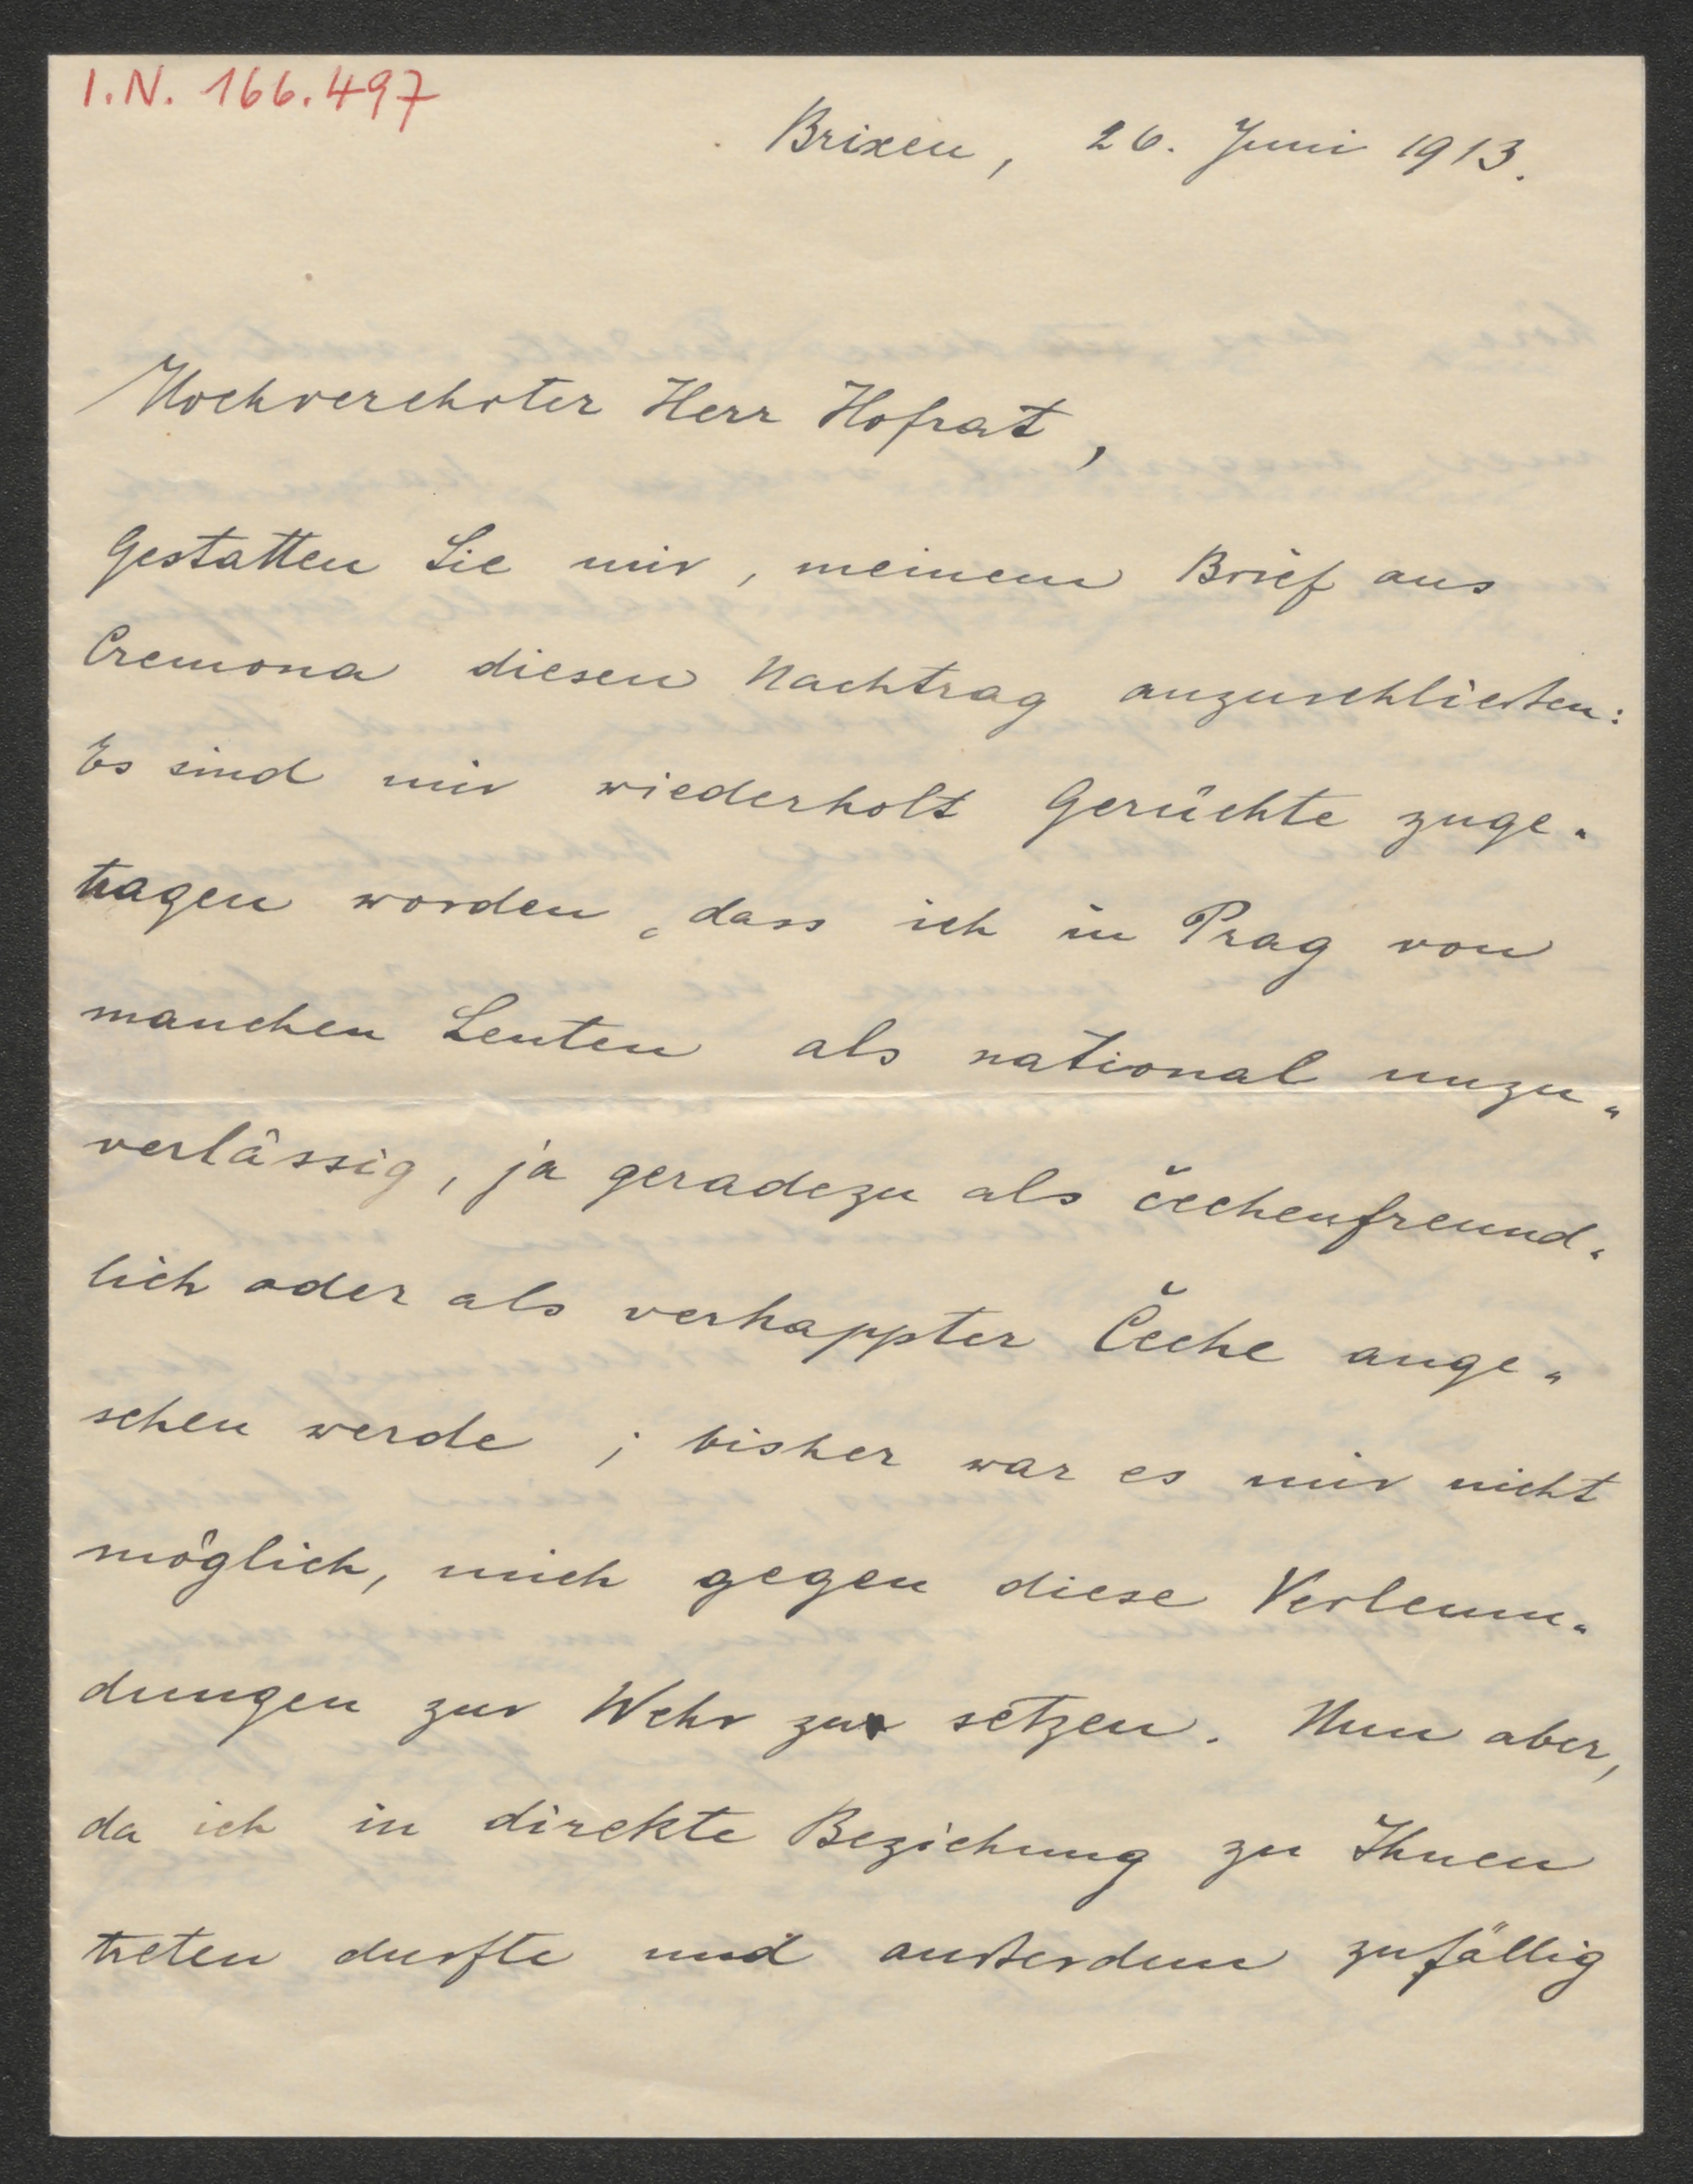 I.N. 166.497
Brixen, 26. Juni 1913.
Hochverehrter Herr Hofrat,
Gestatten Sie mir, meinem Brief aus
Cremona diesen Nachtrag anzuschließen:
Es sind mir wiederholt Gerüchte zuge-
tragen worden, dass ich in Prag von
manchen Leuten als national unzu-
verlässig, ja geradezu als čechenfreund-
lich oder als verkappter Čeche ange-
sehen werde; bisher war es mir nicht
möglich, mich gegen diese Verleum-
dungen zur Wehr zu setzen. Nun aber,
da ich in direkte Beziehung zu Ihnen
treten durfte und außerdem zufällig